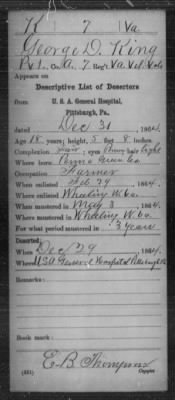 K 7 Va
George D. King
Pvt., Co. A, 7 Reg't Va Vet. Vols
Appears on
Descriptive List of Deserters
from
U. S. A. General Hospital,
Pittsburgh, Pa.,
dated Dec 31, 1864.
Age 18 years; height 5 feet 8 inches
Complexion fair; eyes hair light
Where born Penna Green Co
Occupation Farmer
When enlisted Feb 29, 1864.
Where enlisted Wheeling W. Va
When mustered in May 3, 1864.
Where mustered in Wheeling W. Va
For what period mustered in 3 years
Deserted:
When Dec 29, 1864
Where U.S.A. General Hospital Pittsburgh Pa
Remarks:
Book mark:
E. B. Thompson
Copyist.